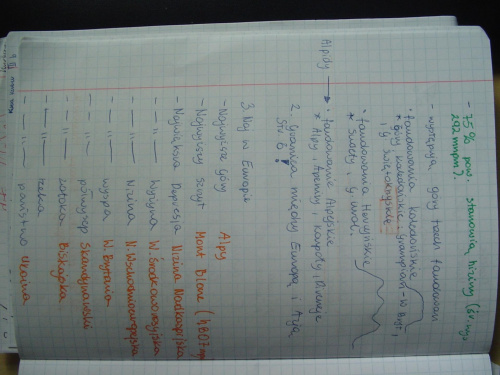 - 75% pow. stanowią niziny (śr. wys.
292 mnpm?)
- występują góry trzech fałdowań
• fałdowania kaledońskie
* góry kaledońskie, Grampian - W. Bryt.,
g. Świętokrzyskie
• fałdowania Hercyńskie
* Sudety, g. Ural.
Alpidy → • fałdowanie Alpejskie
* Alpy, Apeniny, Karpaty, Pireneje
2. Granica między Europą i Azją
str 6!
3. Naj w Europie
- Najwyższe góry Alpy
- Najwyższy szczyt Mont Blanc (4807
- Największa Depresja Nizina Nadkaspijska
- — 11 — Wyżyna W. Środkoworosyjska
- — 11 — Nizina N. Wschodnioeuropejska
- — 11 — wyspa W. Brytania
- — 11 — półwysep Skandynawski
- — 11 — zatoka Biskajska
- — 11 — rzeka
- — 11 — państwo Ukraina